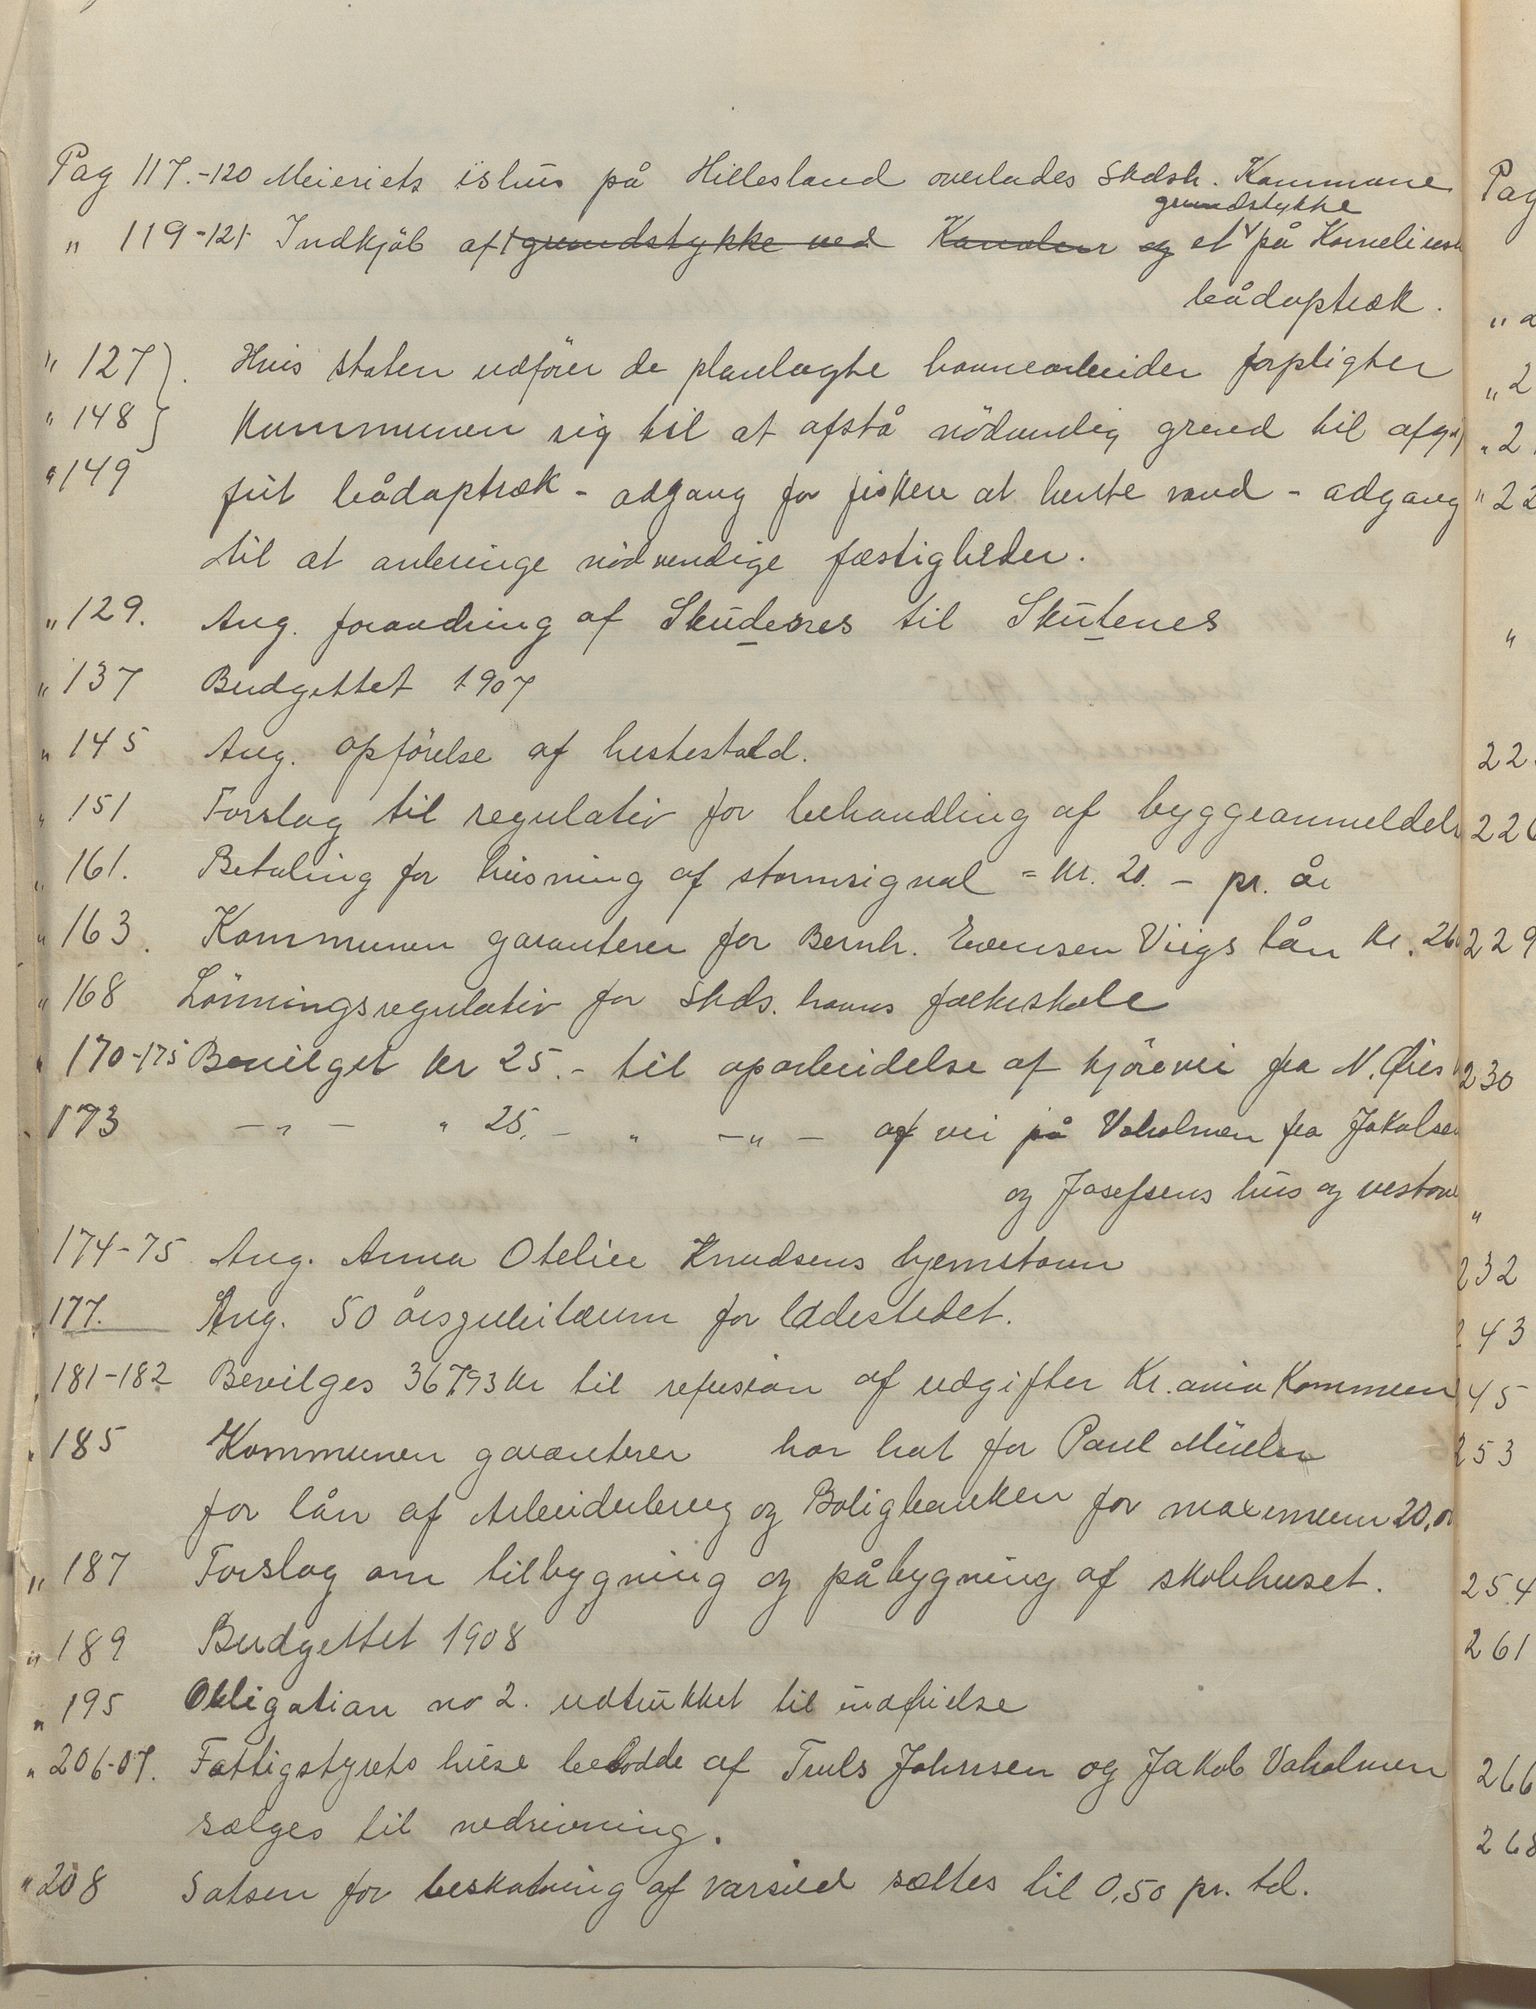 Pag 117.-120 Meieriets ishus på Hillesland overlades Skdsh. Kommune
grundstykke
" 119-121 Indkjöb af 1 grundstykke ved Kanalen og et på Kornelius
bådoptræk.
" 127 Hvis staten udförer de planlagte havnearbeider forpligter
" 148 Kommunen sig til at afstå nödvendig grund til afg
" 149 frit bådoptræk - adgang for fiskere at hente vand - adgang
til at anbringe nödvendige fæstigheder.
" 129. Ang. forandring af Skudesnes til Skutenes
" 137 Budgettet 1907
" 145 Ang. opförelse af hestestald.
" 151 Forslag til regulativ for behandling af byggeanmeldels
" 161. Betaling for heisning af stormsignal = kr. 20. - pr. år
" 163. Kommunen garanterer for Bernh. Evensen Viigs lån kr. 26
" 168 Lönningsregulativ for Skds. havns folkeskole
" 170-175 Bevilget kr 25.- til oparbeidelse af kjörevei fra N.
" 173 -"- " 25.- " -"- af vei på Vaholmen fra Jakobsen
og Josefsens hus og vestov
174-75 Ang. Anna Otelie Knudsens hjemstavn
177. Ang. 50 årsjubilæum for ladestedet.
" 181-182 Bevilges 36793 kr til refusion af udgifter Kr.ania Kommun
" 185 Kommunen garanterer har hat for Paul Müller
for lån af Arbeiderbrug og Boligbanken for maximum 20,0
" 187 Forslag om tilbygning og påbygning af skolehuset.
" 189 Budgettet 1908
" 195 Obligation no 2. udtrukket til indfrielse
" 206-07. Fattigstyrets huse bebodde af Truls Johnsen og Jakob Vaholmen
sælges til nedrivning.
" 208 Satsen for beskatning af varsild sættes til 0,50 pr. td.
Pag
" 2
" 2
" 2
" 22
"
22
226
229
230
"
232
243
45
253
254
261
266
268